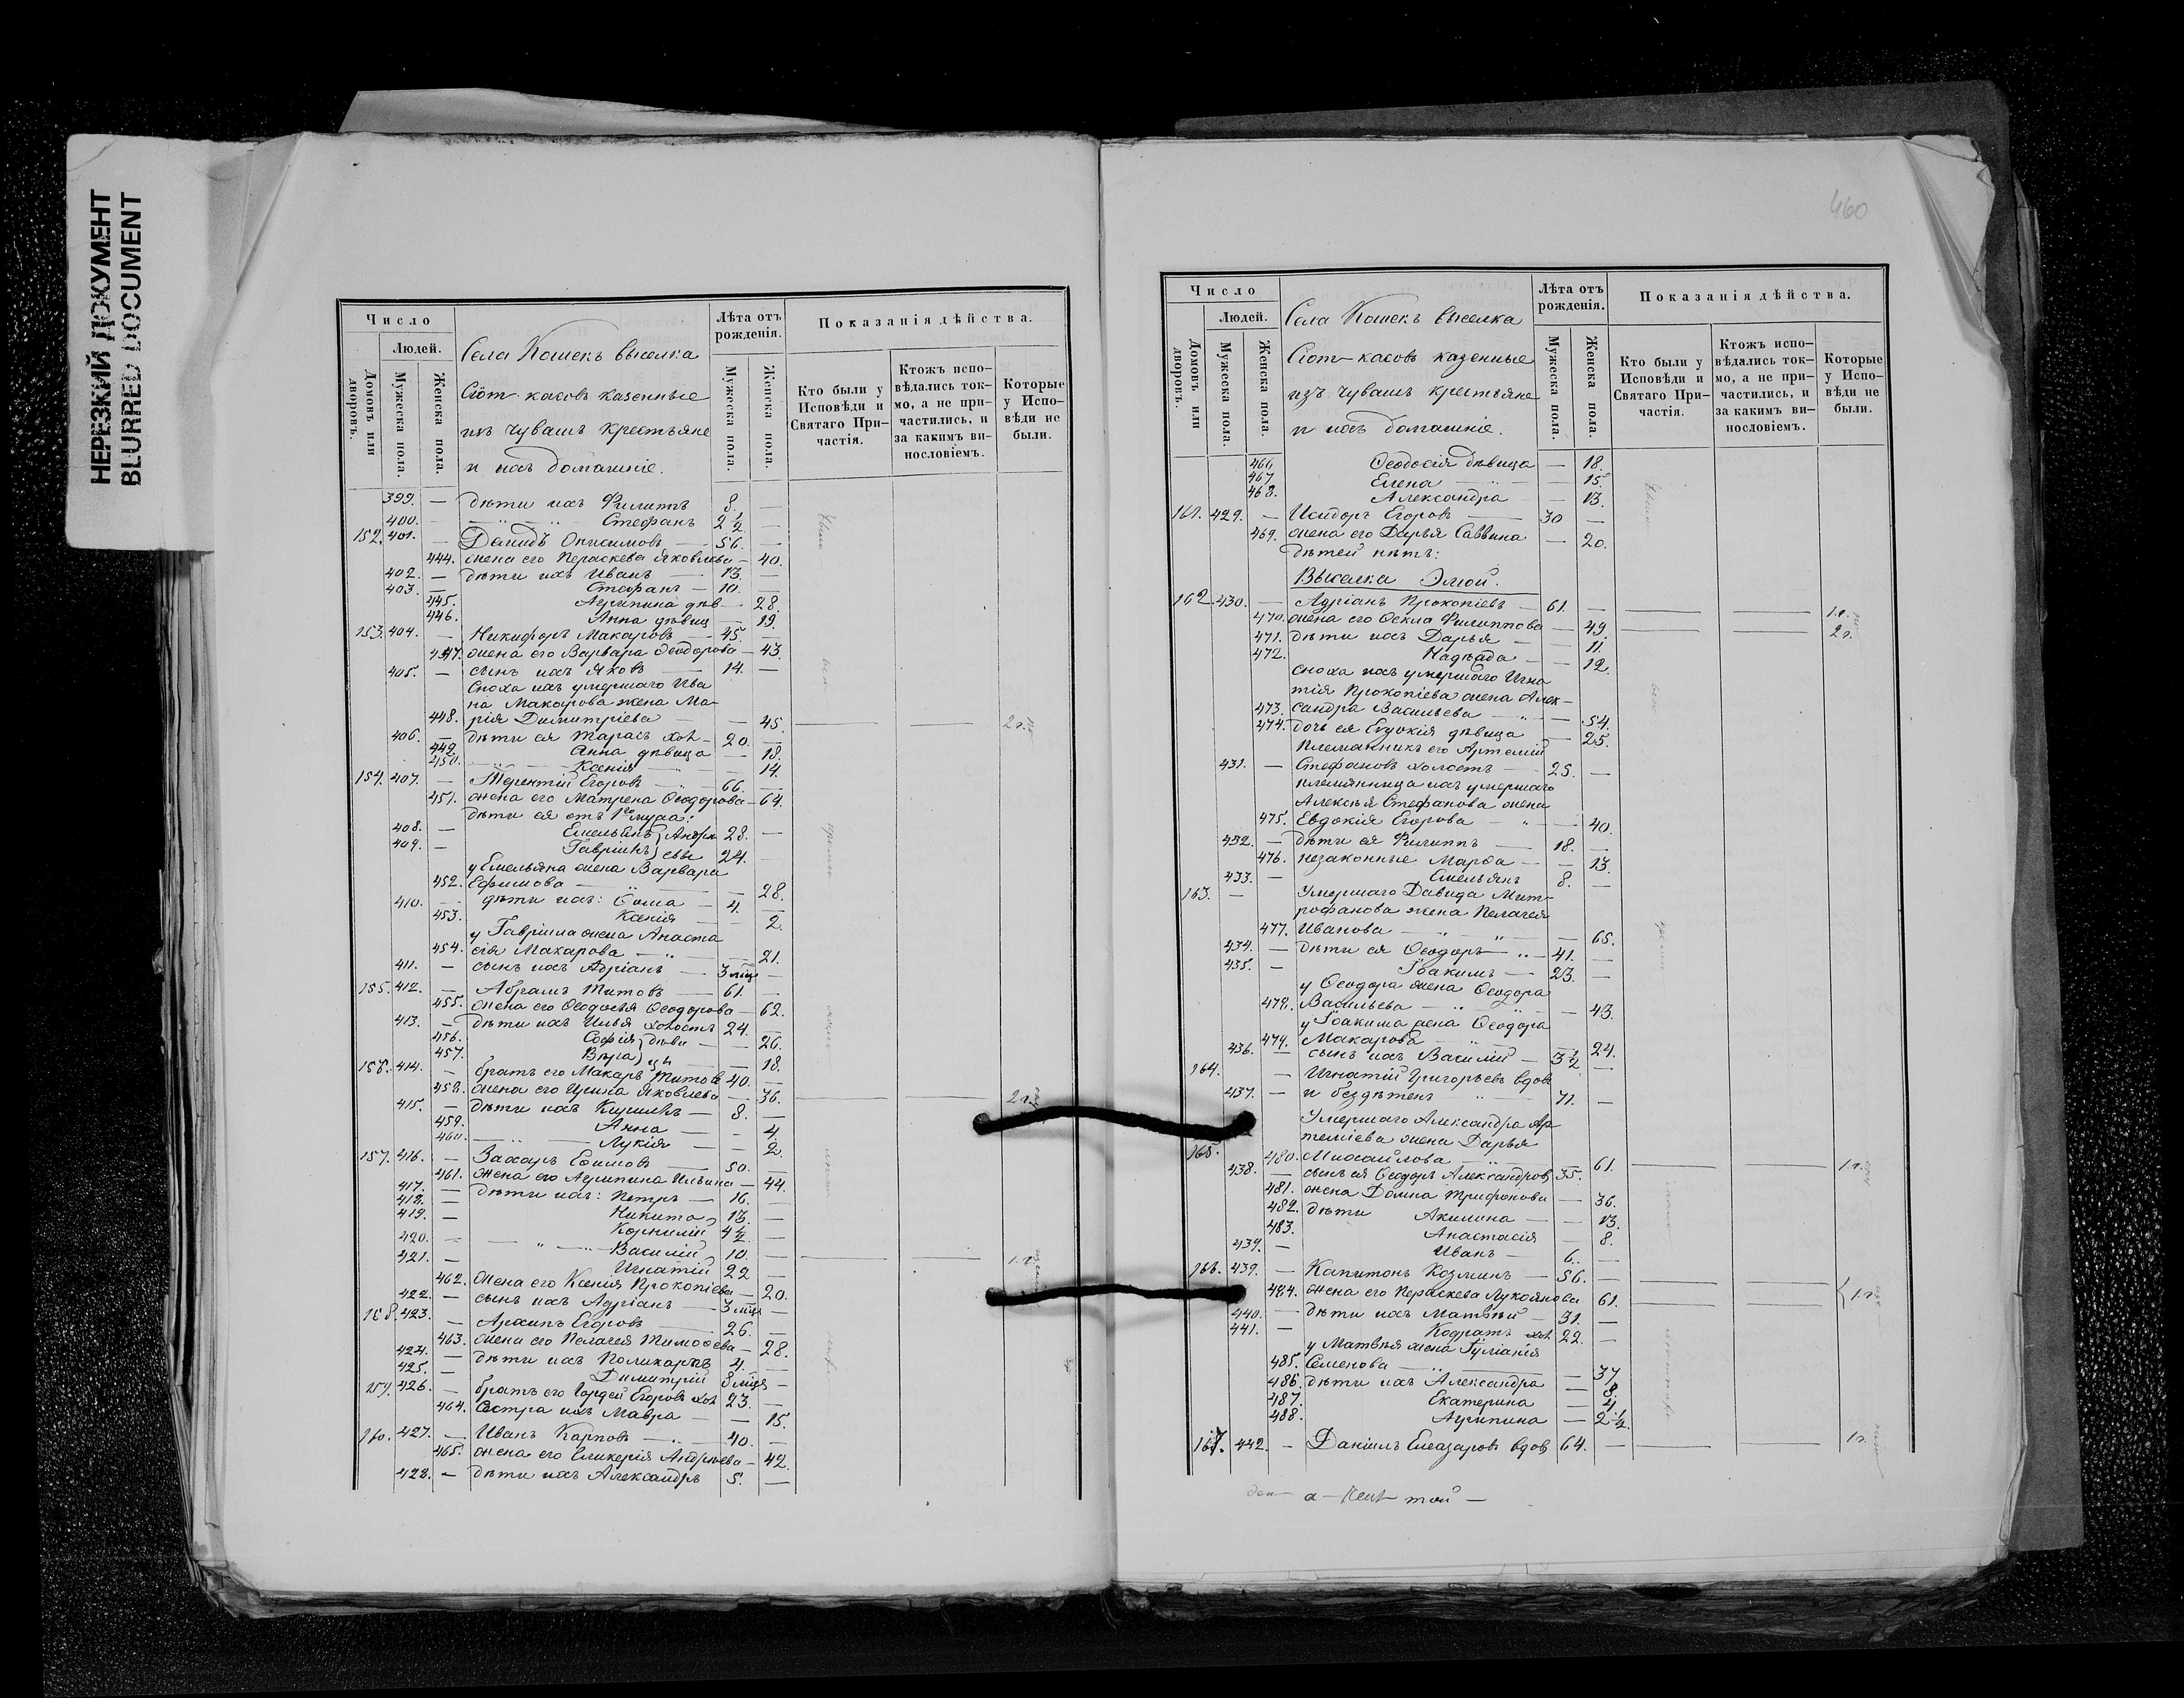 НЕРЕЗКИЙ ДОКУМЕНТ
BLURRED DOCUMENT
Число
Людей.
Домовъ или дворовъ.
Мужеска пола.
Женска пола.
Села Кошекъ выселка
Сіот-касовъ казенные
изъ чувашъ крестьяне
и ихъ домашніе.
Лѣта отъ рожденія.
Мужеска пола.
Женска пола.
Показанія дѣйства.
Кто были у Исповѣди и Святаго Причастія.
Ктожъ исповѣдались токмо, а не причастились, и за какимъ винословіемъ.
Которые у Исповѣди не были.
399. — дѣти ихъ Филиппъ 8. —
400. — Стефанъ 2 1/2 —
152. 401. — Давидъ Онисимовъ — 56. —
444. жена его Параскева Яковлева — 40.
402. — дѣти ихъ Иванъ — 13. —
403. — Стефанъ — 10. —
445. Агрипина дѣв — 28.
446. Анна дѣвиц — 19.
153. 404. — Никифоръ Макаровъ — 45. —
447. жена его Варвара Ѳеодорова — 43.
405. — сынъ ихъ Яковъ — 14. —
Сноха ихъ умершаго Ива
на Макарова жена Ма-
448. рія Димитріева — — 45. 2 г.
406. — дѣти ея Тарасъ хол — 20. —
449. Анна дѣвица — 18.
450. Ксенія — 14.
154. 407. — Терентій Егоровъ — 66. —
451. жена его Матрена Ѳеодорова — 64.
дѣти ея отъ 1го мужа:
408. — Емельянъ Андре 28. —
409. — Гавріилъ евы 24. —
у Емельяна жена Варвара
452. Ефимова — — 28.
410. — дѣти ихъ: Ѳома — 4. —
453. Ксенія — 2.
у Гавріила жена Анаста
454. сія Макарова — — 21.
411. — сынъ ихъ Адріанъ — 3 мцъ —
155. 412. — Абрамъ Титовъ — 61. —
455. жена его Ѳеодосья Ѳеодорова — 62.
413. — дѣти ихъ Илья холостъ 24. —
456. Софія дѣви — 26.
457. Вѣра цы — 18.
156. 414. — братъ его Макаръ Титовъ 40. —
458. жена его Ирина Яковлева — 36. 2 г.
415. — дѣти ихъ Кириллъ — 8. —
459. Анна — 4.
460. Лукія — 2.
157. 416. — Захаръ Ефимовъ — 50. —
461. жена его Агрипина Ильина — 44.
417. — дѣти ихъ: Петръ — 16. —
418. — Никита 13. —
419. — Корнилій 4 1/2 —
420. — Василій 10. —
421. — Игнатій 22 — 1 г.
462. жена его Ксенія Прокопіева — 20.
422. — сынъ ихъ Адріанъ — 3 мцъ —
158. 423. — Архипъ Егоровъ — 26. —
463. жена его Пелагея Тимоѳеева — 28.
424. — дѣти ихъ Поликарпъ 4. —
425. — Димитрій 8 мцъ —
159. 426. — братъ его Гордей Егоровъ хол 23. —
464. сестра ихъ Мавра — — 15.
160. 427. — Иванъ Карповъ — 40. —
465. жена его Гликерія Андреева — 42.
428. — дѣти ихъ Александръ 5. —
460
Число
Людей.
Домовъ или дворовъ.
Мужеска пола.
Женска пола.
Села Кошекъ выселка
Сіот-касовъ казенные
изъ чувашъ крестьяне
и ихъ домашніе.
Лѣта отъ рожденія.
Мужеска пола.
Женска пола.
Показанія дѣйства.
Кто были у Исповѣди и Святаго Причастія.
Ктожъ исповѣдались токмо, а не причастились, и за какимъ винословіемъ.
Которые у Исповѣди не были.
466 Ѳеодосія дѣвица — 18.
467 Елена — 15.
468. Александра — 13.
161. 429. — Исидоръ Егоровъ — 30 —
469. жена его Дарья Саввина — 20.
дѣтей нѣтъ:
Выселка Элмой.
162. 430. — Адріанъ Прокопіевъ — 61. — 1 г.
470. жена его Ѳекла Филиппова — 49. 2 г.
471. дѣти ихъ Дарья — — 11.
472. Надѣжда — — 12.
сноха ихъ умершаго Игна
тія Прокопіева жена Алек-
473. сандра Васильева — 54.
474. дочь ея Евдокія дѣвица — 25.
племянникъ его Артемій
431. — Стефановъ холостъ — 25. —
племянница ихъ умершаго
Алексѣя Стефанова жена
475. Евдокія Егорова — — 40.
432. — дѣти ея Филиппъ — 18. —
476. незаконные Марѳа — — 13.
433. — Емельянъ 8. —
163. — Умершаго Давида Мит-
рофанова жена Пелагея
477. Иванова — — 65.
434. — дѣти ея Ѳеодоръ — 41. —
435. — Іоакимъ — 23. —
у Ѳеодора жена Ѳеодора
478. Васильева — — 43.
у Іоакима жена Ѳеодора
479. Макарова — — 24.
436. — сынъ ихъ Василій — 3 1/2 —
164. — Игнатій Григорьевъ вдов
437. — и бездѣтенъ — 71. —
Умершаго Александра Ар
темиева жена Дарья
165. 480. Михайлова — — 61. 1 г.
438. — сынъ ея Ѳеодоръ Александров 35. —
481. жена Домна Трифонова — 36.
482. дѣти Акилина — — 13.
483. Анастасія — 8.
439. — Иванъ — 6. —
166. 439. — Капитонъ Козминъ — 56. —
484. жена его Параскева Лукоянова 61. 1 г.
440. — дѣти ихъ Матвѣй — 31. —
441. — Кодратъ хол. 22. —
у Матвѣя жена Іуліанія
485. Семенова — — 37
486. дѣти ихъ Александра — 8.
487. Екатерина — 4
488. Агрипина — 2 1/2
167. 442. — Даніилъ Елеазаровъ вдов 64. — 1 г.